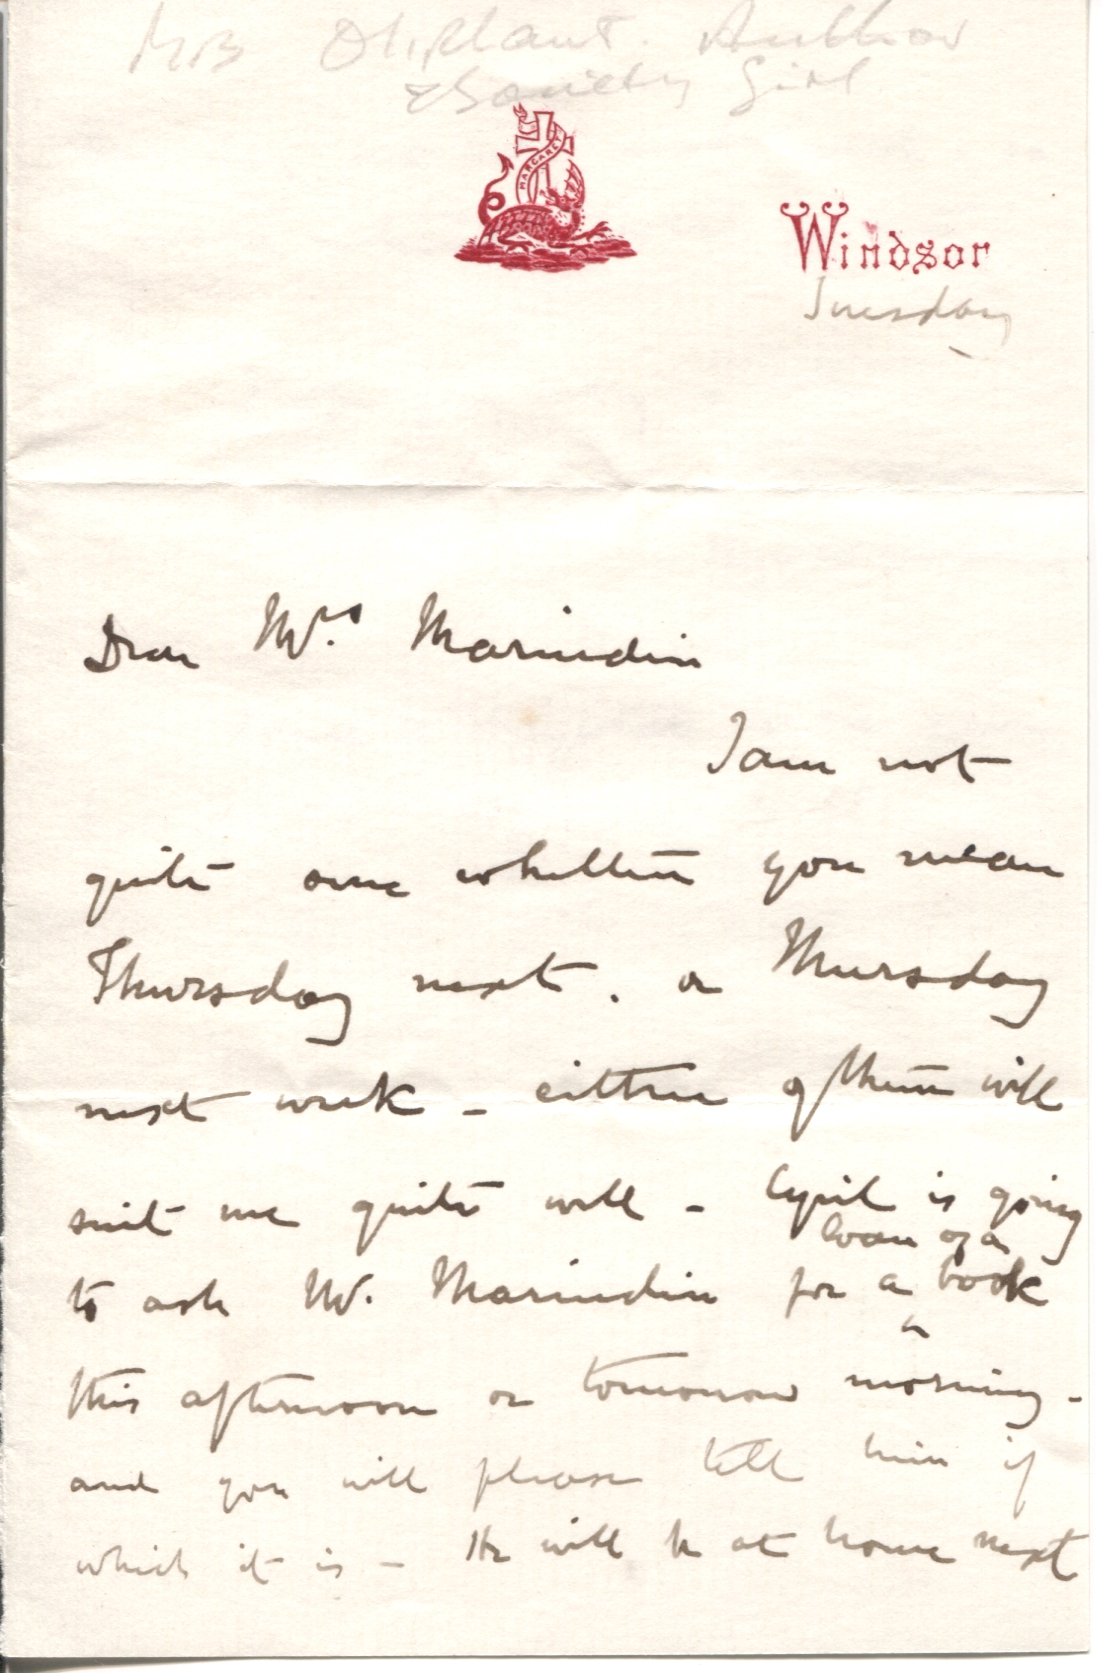 Mrs Oliphant. Author
& Society Girl
MARGARET
Windsor
Tuesday
Dear Mrs Marindin
I am not
quite sure whether you mean
Thursday next. or Thursday
next week – either of them will
suit me quite well – Cyril is going
loan of a
to ask Mr. Marindin for a book
this afternoon or tomorrow morning –
and you will please tell him if
which it is – He will be at home next